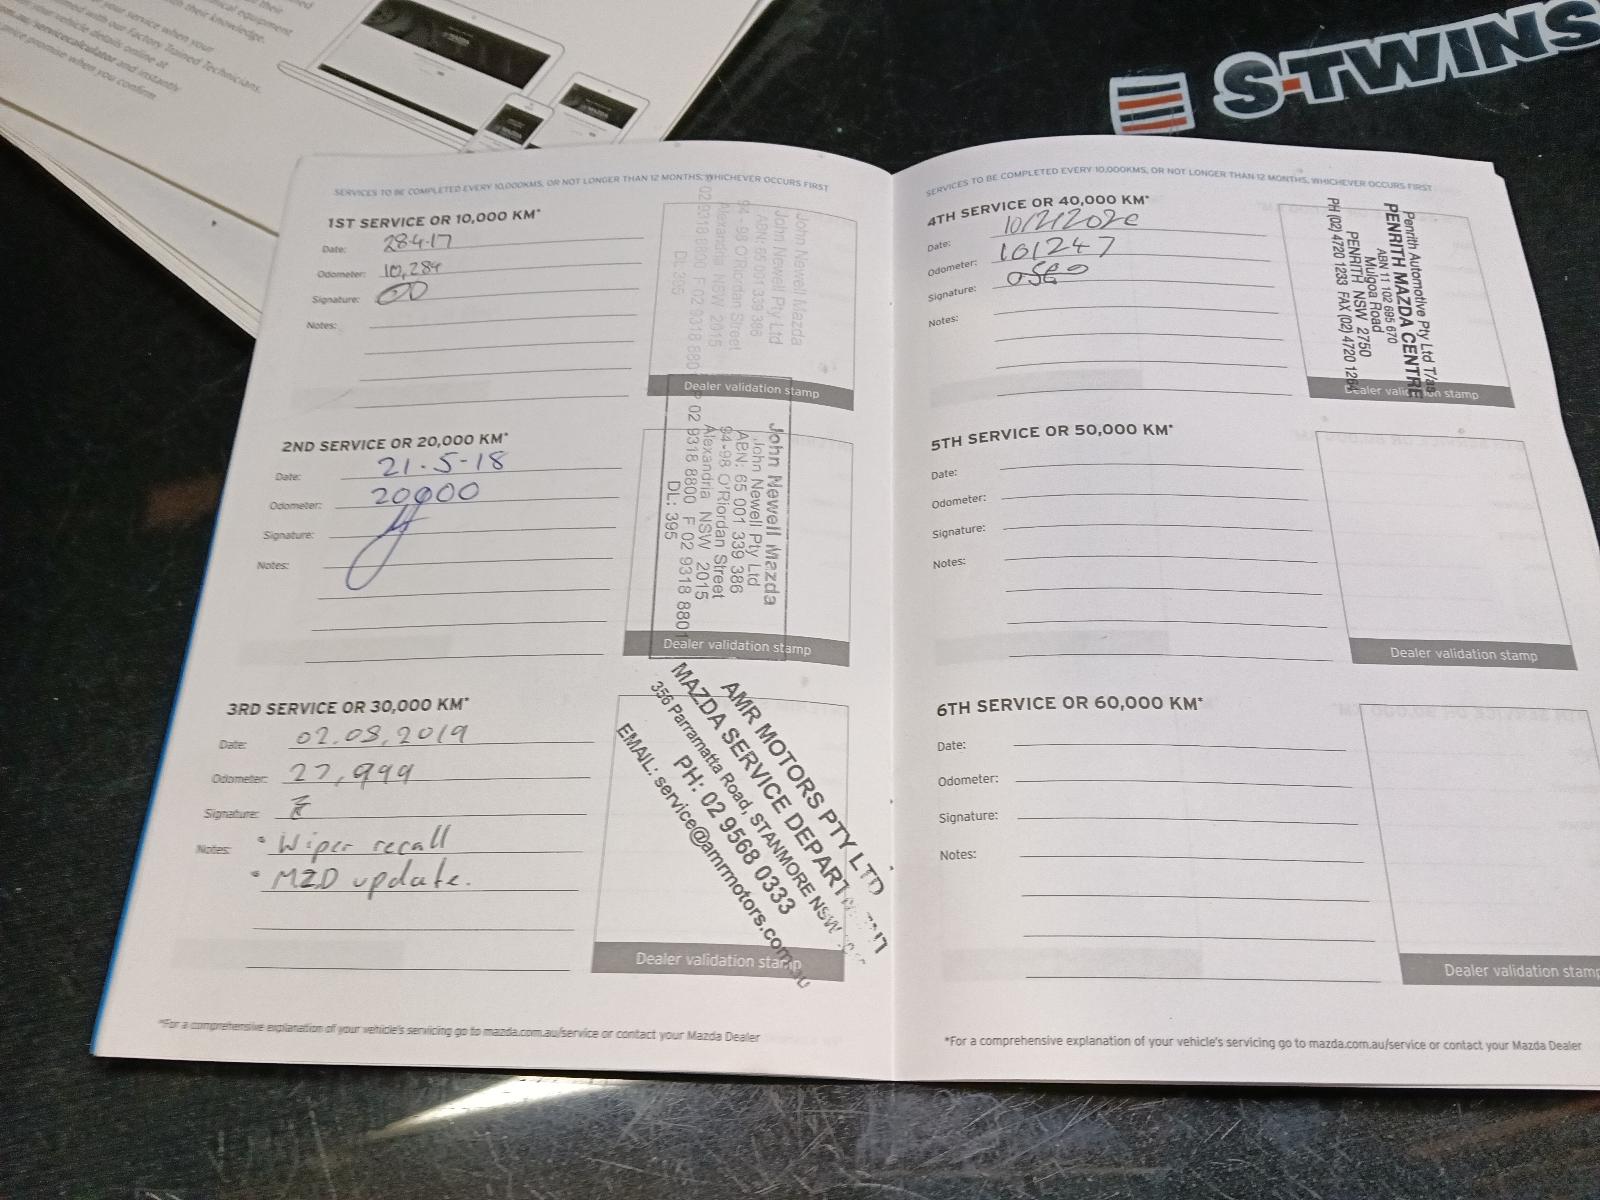 S-TWINS
SERVICES TO BE COMPLETED EVERY 10,000KMS, OR NOT LONGER THAN 12 MONTHS, WHICHEVER OCCURS FIRST
1ST SERVICE OR 10,000 KM*
Date: 28.4.17
Odometer: 10,284
Signature:
Notes:
John Newell Mazda
John Newell Pty Ltd
ABN: 65 001 339 386
94-98 O'Riordan Street
Alexandria NSW 2015
02 9318 8800 F 02 9318 8801
DL: 395
Dealer validation stamp
2ND SERVICE OR 20,000 KM*
Date: 21.5-18
Odometer: 20000
Signature:
Notes:
John Newell Mazda
John Newell Pty Ltd
ABN: 65 001 339 386
94-98 O'Riordan Street
Alexandria NSW 2015
P 02 9318 8800 F 02 9318 8801
DL: 395
Dealer validation stamp
3RD SERVICE OR 30,000 KM*
Date: 02.08.2019
Odometer: 27,999
Signature:
Notes: • Wiper recall
• MZD update.
AMR MOTORS PTY LTD
MAZDA SERVICE DEPARTMENT
356 Parramatta Road, STANMORE NSW
PH: 02 9568 0333
EMAIL: service@amrmotors.com.au
Dealer validation stamp
*For a comprehensive explanation of your vehicle's servicing go to mazda.com.au/service or contact your Mazda Dealer
SERVICES TO BE COMPLETED EVERY 10,000KMS, OR NOT LONGER THAN 12 MONTHS, WHICHEVER OCCURS FIRST
4TH SERVICE OR 40,000 KM*
Date:
Odometer: 101247
Signature:
Notes:
Penrith Automotive Pty Ltd T/as
PENRITH MAZDA CENTRE
ABN 11 102 695 670
Mulgoa Road
PENRITH NSW 2750
PH (02) 4720 1233 FAX (02) 4720 1264
Dealer validation stamp
5TH SERVICE OR 50,000 KM*
Date:
Odometer:
Signature:
Notes:
Dealer validation stamp
6TH SERVICE OR 60,000 KM*
Date:
Odometer:
Signature:
Notes:
Dealer validation stamp
*For a comprehensive explanation of your vehicle's servicing go to mazda.com.au/service or contact your Mazda Dealer